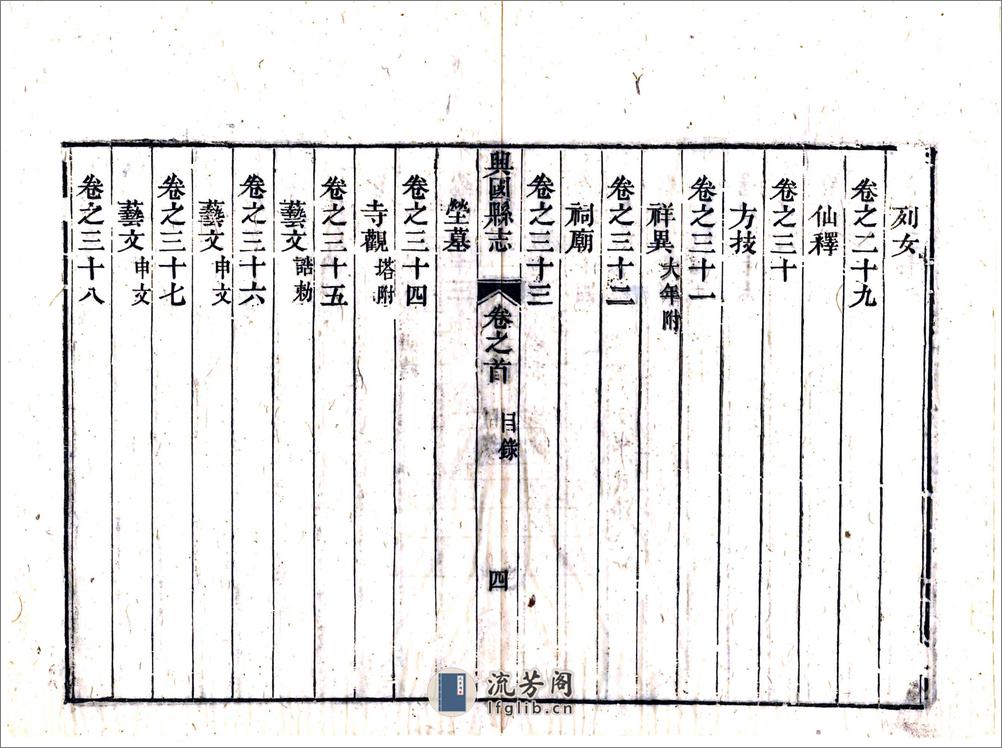 列女
卷之二十九
仙釋
卷之三十
方技
卷之三十一
祥異 大年附
卷之三十二
祠廟
卷之三十三
興國縣志 卷之首 目錄 四
塋墓
卷之三十四
寺觀 塔附
卷之三十五
藝文 誥勅
卷之三十六
藝文 申文
卷之三十七
藝文 申文
卷之三十八
流芳阁
lfglib.cn